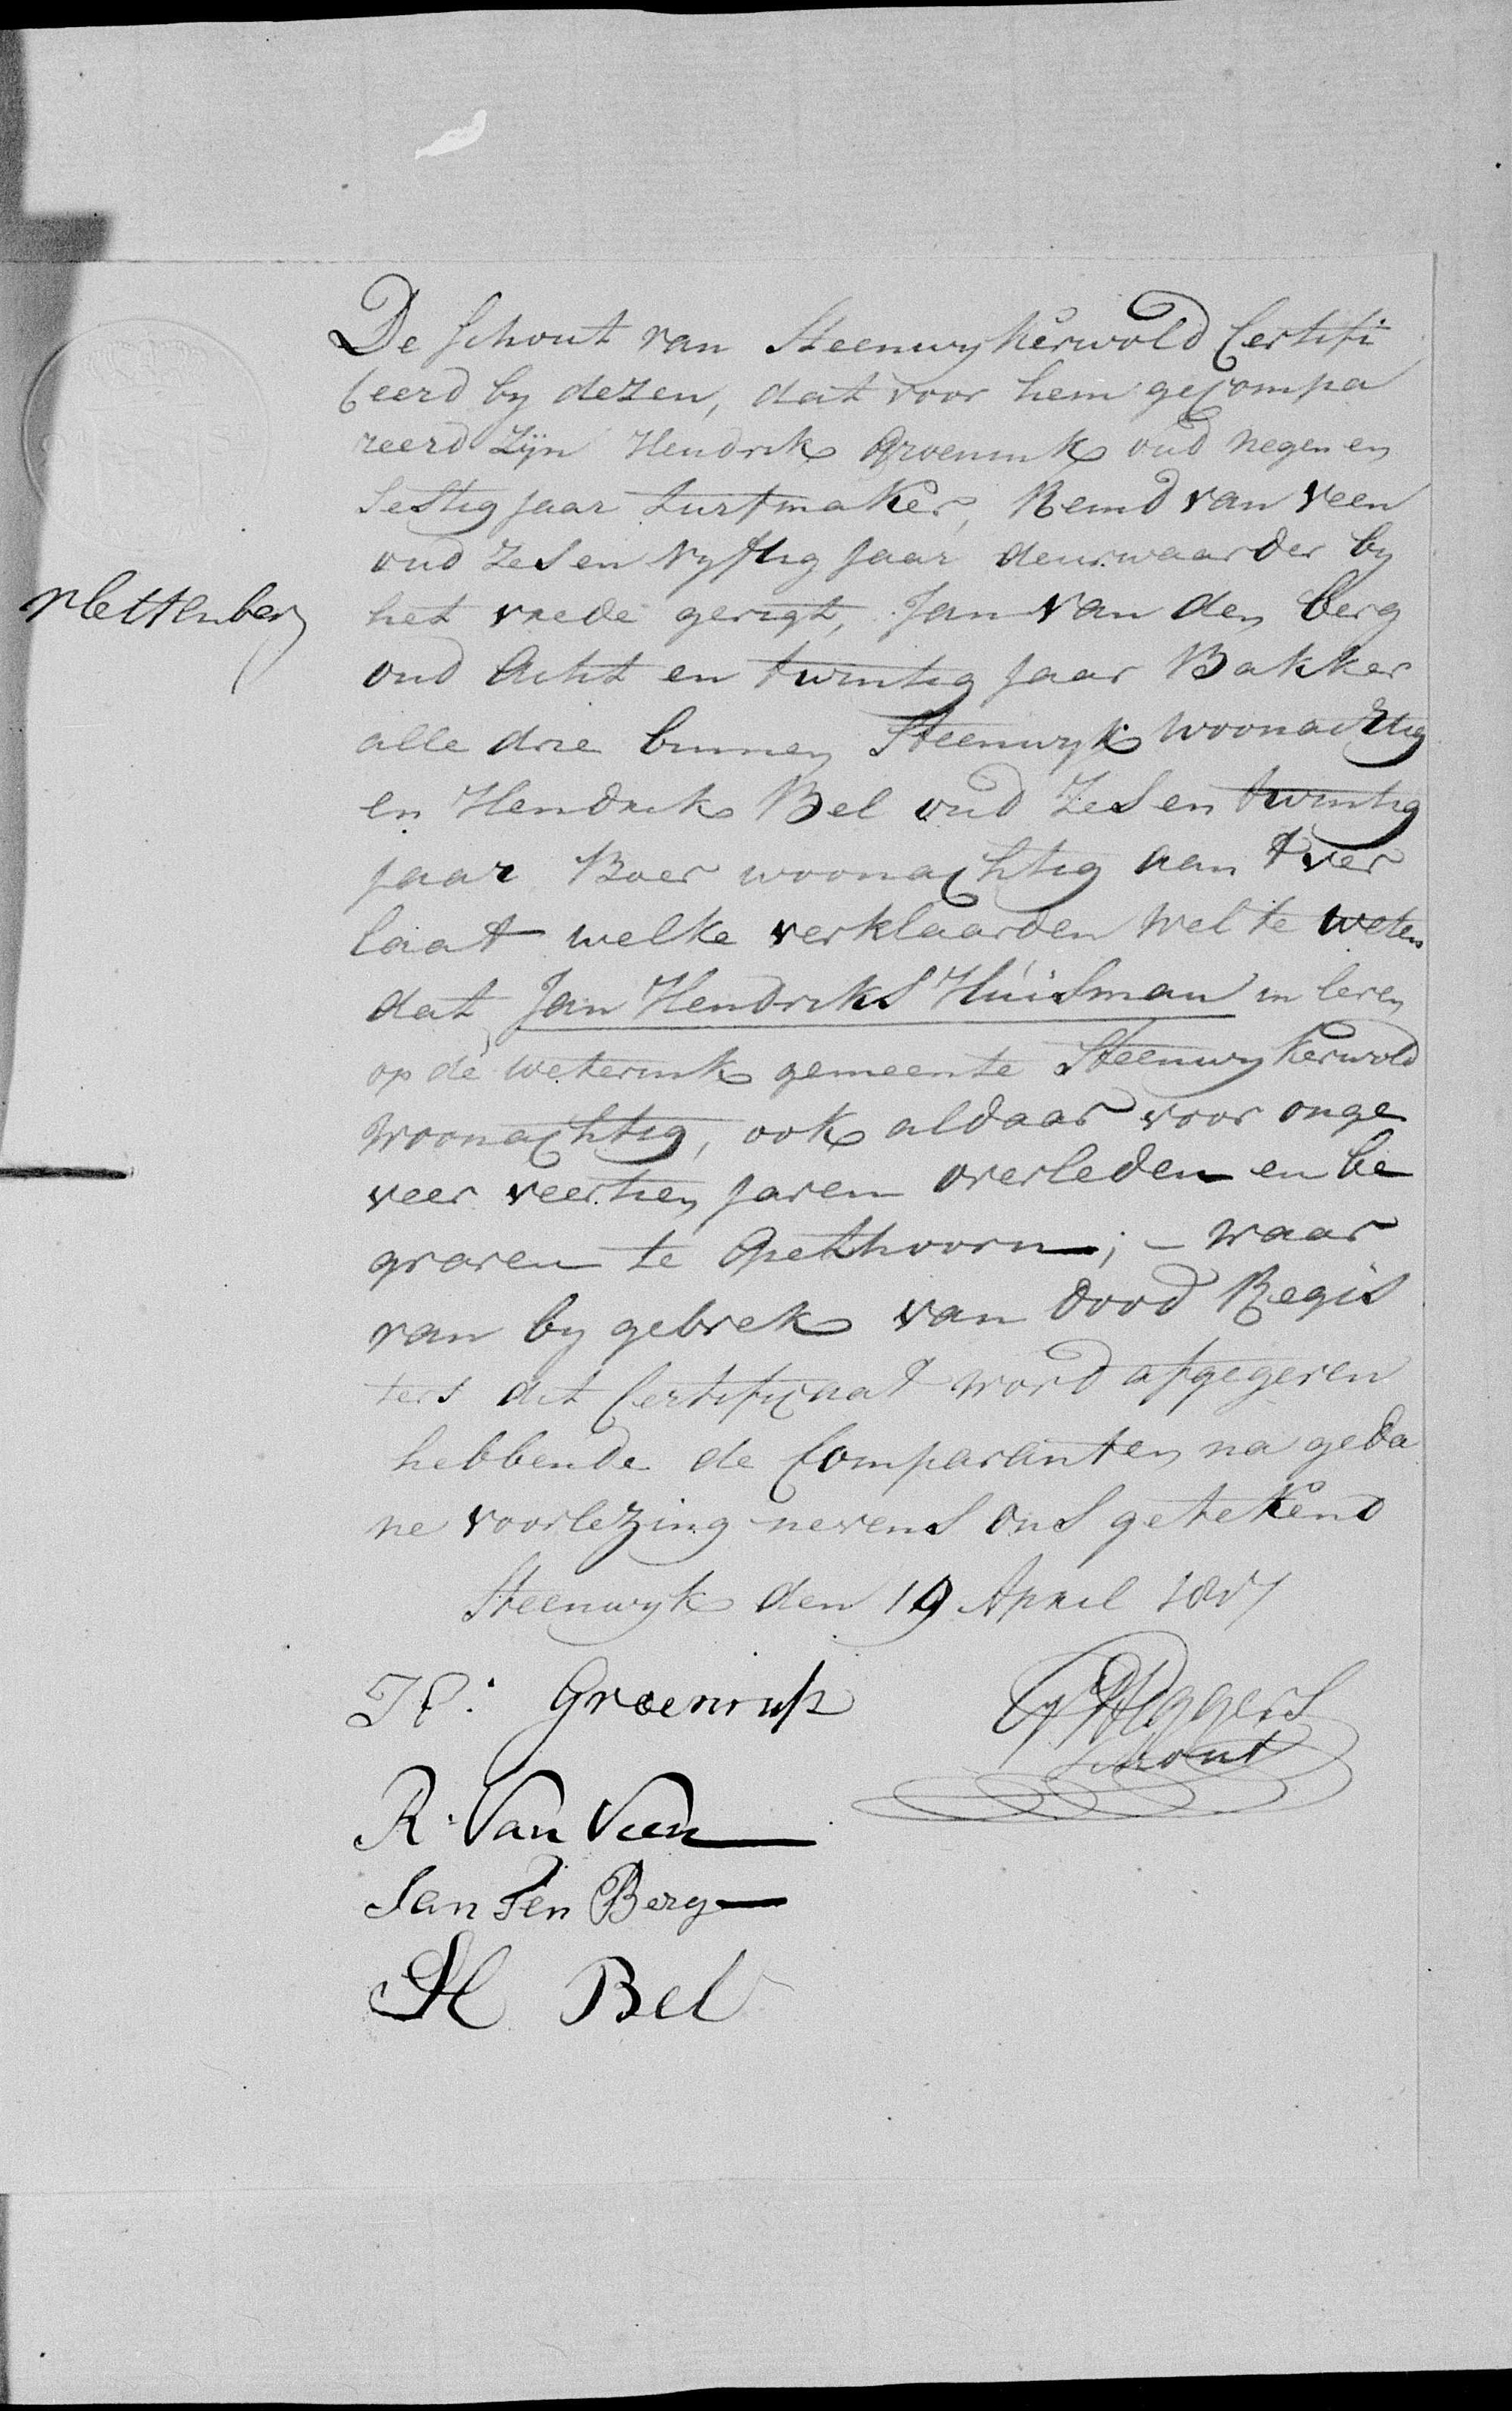 De Schout van Steenwykerwold Certifi
ceerd by dezen, dat voor hem gecompa
reerd Zyn Hendrik Groenink oud negen en
Sestig Jaar turfmaker, Remd van Veen
oud Zes en Vyftig Jaar deurwaarder by
het vrede gerigt, Jan Van den berg
oud Acht en twintig Jaar Bakker
alle drie binnen Steenwyk woonachtig
en Hendrik Bel oud Zes en twintig
Jaar Boer woonachtig aan t ver
laat welke verklaarden wel te weten
dat Jan Hendriks Huisman in leven
op de weterink gemeente Steenwykerwold
woonachtig, ook aldaar voor onge
veer veertien Jaren overleden en be
graven te Giethoorn; - waar
van by gebrek van dood Regis
ters dit Certificaat word afgegeven
hebbende de Comparanten na geda
ne voorlezing nevens ons getekend
Steenwyk den 19 April 1817
H: Groenink
Schout
R. Van Veen
Jan Ten Berg
H Bel